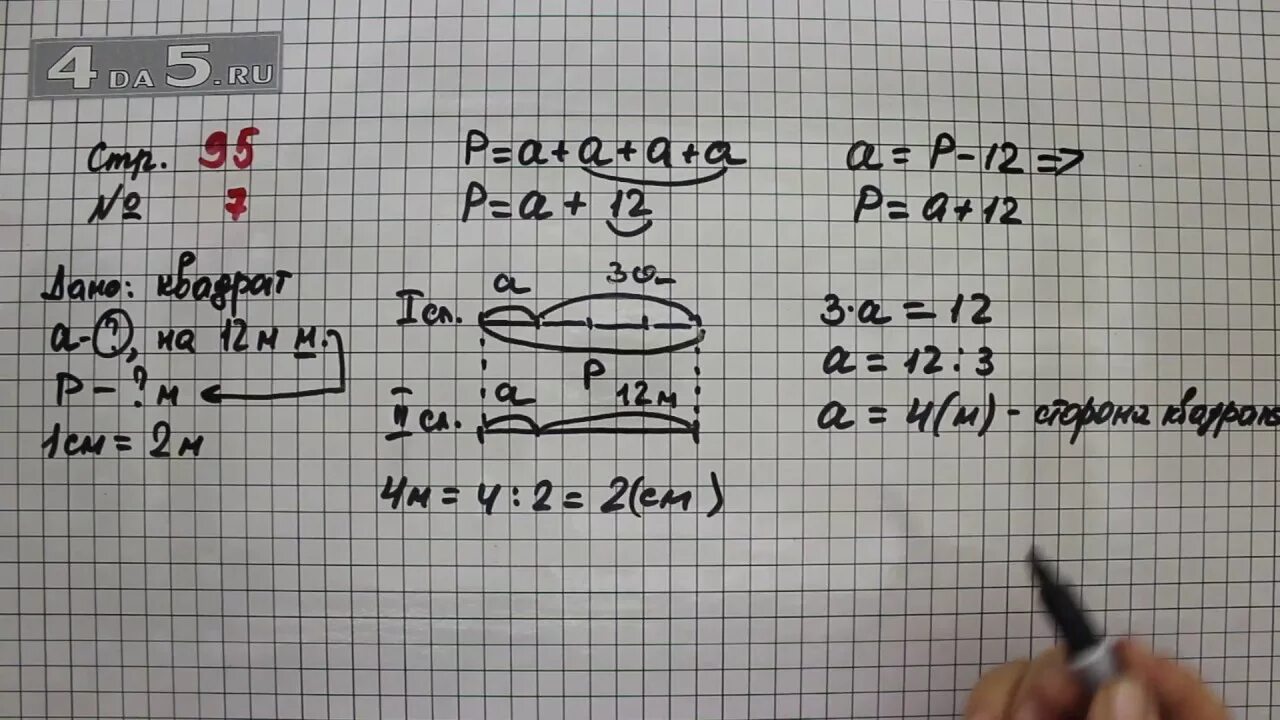 4DA5.RU
Стр. 95
№ 7
Дано: квадрат
a-?, на 12м м.
P - ? м
1см = 2м
P=a+a+a+a
P=a+12
a 3a
I сп.
P
a 12м
II сп.
4м = 4:2 = 2(см)
a = P-12 =>
P = a+12
3·a = 12
a = 12:3
a = 4(м) - сторона квадрата